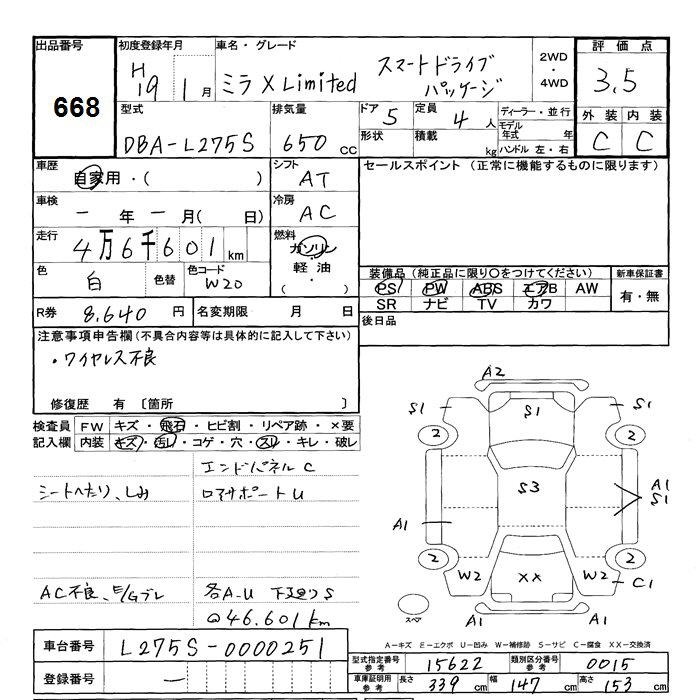 出品番号
668
初度登録年月
H19 1月
車名・グレード
ミラ X Limited スマートドライブパッケージ
2WD・4WD
評価点
3.5
型式
DBA-L275S
排気量
650 cc
ドア 5
形状
定員 4 人
積載 kg
ディーラー・並行
モデル年式 年
ハンドル 左・右
外装 内装
C C
車歴
自家用・( )
シフト
AT
車検
ー年ー月( 日)
冷房
AC
走行
4万6千601 km
燃料
ガソリン・軽油・( )
色
白
色替
色コード
W20
R券 8,640 円
名変期限 月 日
セールスポイント (正常に機能するものに限ります)
装備品 (純正品に限り○をつけてください)
PS PW ABS エアB AW
SR ナビ TV カワ
新車保証書
有・無
後日品
注意事項申告欄(不具合内容等は具体的に記入して下さい)
・ワイヤレス不良
修復歴 有 〔箇所 〕
検査員記入欄
FW キズ・飛石・ヒビ割・リペア跡・×要
内装 キズ・汚レ・コゲ・穴・スレ・キレ・破レ
エンドパネルC
シートへたり、しみ
ロアサポートU
AC不良、E/Gブレ
各A-U 下廻りS
@46.601km
A2
S1 S1 S1
2 2
S3
A1
S1
A1
2 2
W2 XX W2
C1
スペア
A1 A1
A-キズ E-エクボ U-凹み W-補修跡 S-サビ C-腐食 XX-交換済
車台番号 L275S-0000251
登録番号 ー
型式指定番号参考 15622
類別区分番号参考 0015
車庫証明用参考 長さ 339 cm 幅 147 cm 高さ 153 cm